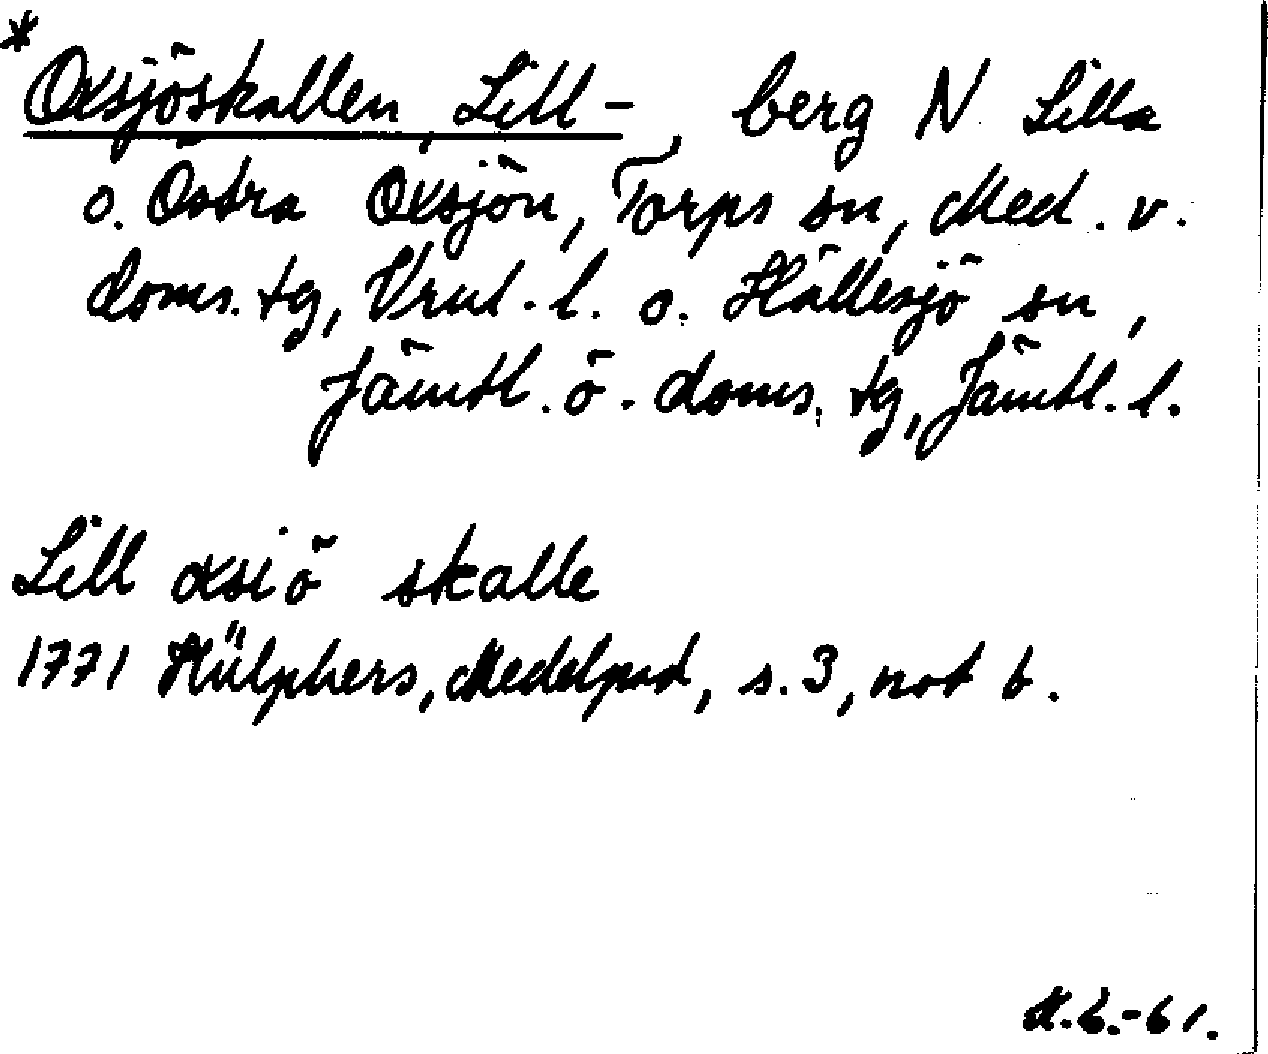 *
Oxsjöskallen, Lill-, berg N Lilla
o. Östra Oxsjön, Torps sn, Med. v.
doms. tg, Vrnl. l. o. Hällesjö sn,
Jämtl. ö. doms. tg, Jämtl. l.
Lill oxsiö skalle
1771 Hülphers, Medelpad, s. 3, not b.
-61.